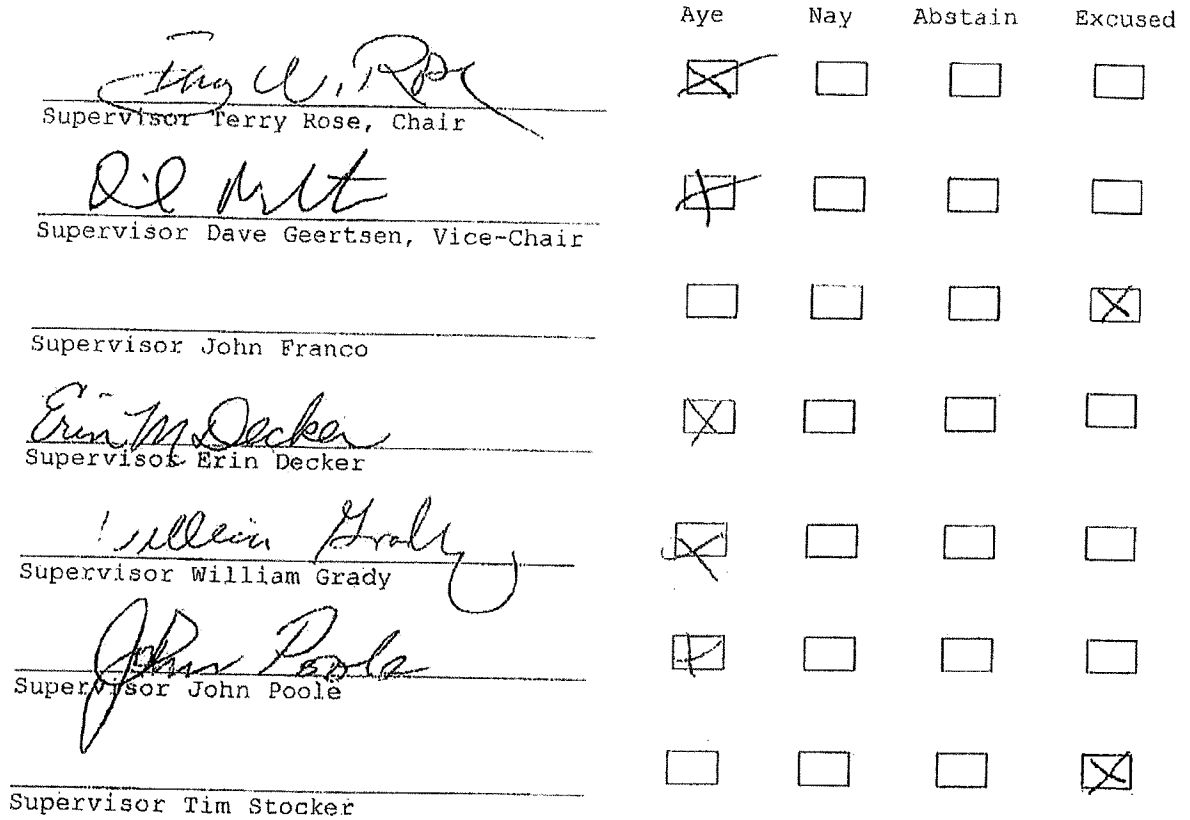 Aye Nay Abstain Excused
Terry W. Rose
Supervisor Terry Rose, Chair
Supervisor Dave Geertsen, Vice-Chair
Supervisor John Franco
Erin M Decker
Supervisor Erin Decker
William Grady
Supervisor William Grady
John Poole
Supervisor John Poole
Supervisor Tim Stocker